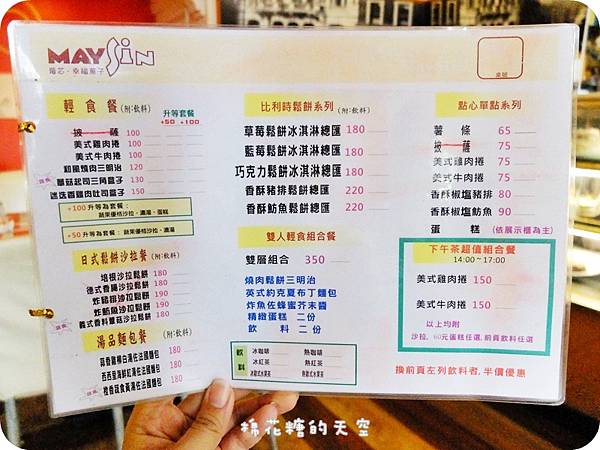 MAYSiN
莓芯‧幸福菓子
桌號
輕食餐 (附:飲料)
升等套餐
+50 +100
披薩 100
美式雞肉捲 100
美式牛肉捲 100
和風燒肉三明治 120
蘑菇起司三角盒子 130
迷迭香雞肉吐司盒子 150
+100 升等為套餐：
蔬果優格沙拉、濃湯、蛋糕
+50 升等為套餐：蔬果優格沙拉、濃湯
日式鬆餅沙拉餐 (附:飲料)
培根沙拉鬆餅 180
德式香腸沙拉鬆餅 180
炸豬排沙拉鬆餅 190
炸魴魚沙拉鬆餅 190
義式香料蘑菇沙拉鬆餅 180
湯品麵包餐 (附:飲料)
蒜香雞柳白湯佐法國麵包 180
西西里海鮮紅湯佐法國麵包 180
橙香蔬食黃湯佐法國麵包 180
比利時鬆餅系列 (附:飲料)
草莓鬆餅冰淇淋總匯 180
藍莓鬆餅冰淇淋總匯 180
巧克力鬆餅冰淇淋總匯 180
香酥豬排鬆餅總匯 220
香酥魴魚鬆餅總匯 220
雙人輕食組合餐
雙層組合 350
燒肉鬆餅三明治
英式約克夏布丁麵包
炸魚佐蜂蜜芥末醬
精緻蛋糕 二份
飲料 二份
飲料
冰咖啡 熱咖啡
冰紅茶 熱紅茶
點心單點系列
薯條 65
披薩 75
美式雞肉捲 75
美式牛肉捲 75
香酥椒塩豬排 80
香酥椒塩魴魚 90
蛋糕 (依展示櫃為主)
下午茶超值組合餐
14:00~17:00
美式雞肉捲 150
美式牛肉捲 150
以上均附
沙拉, 60元蛋糕任選,前頁飲料任選
換前頁左列飲料者,半價優惠
棉花糖的天空